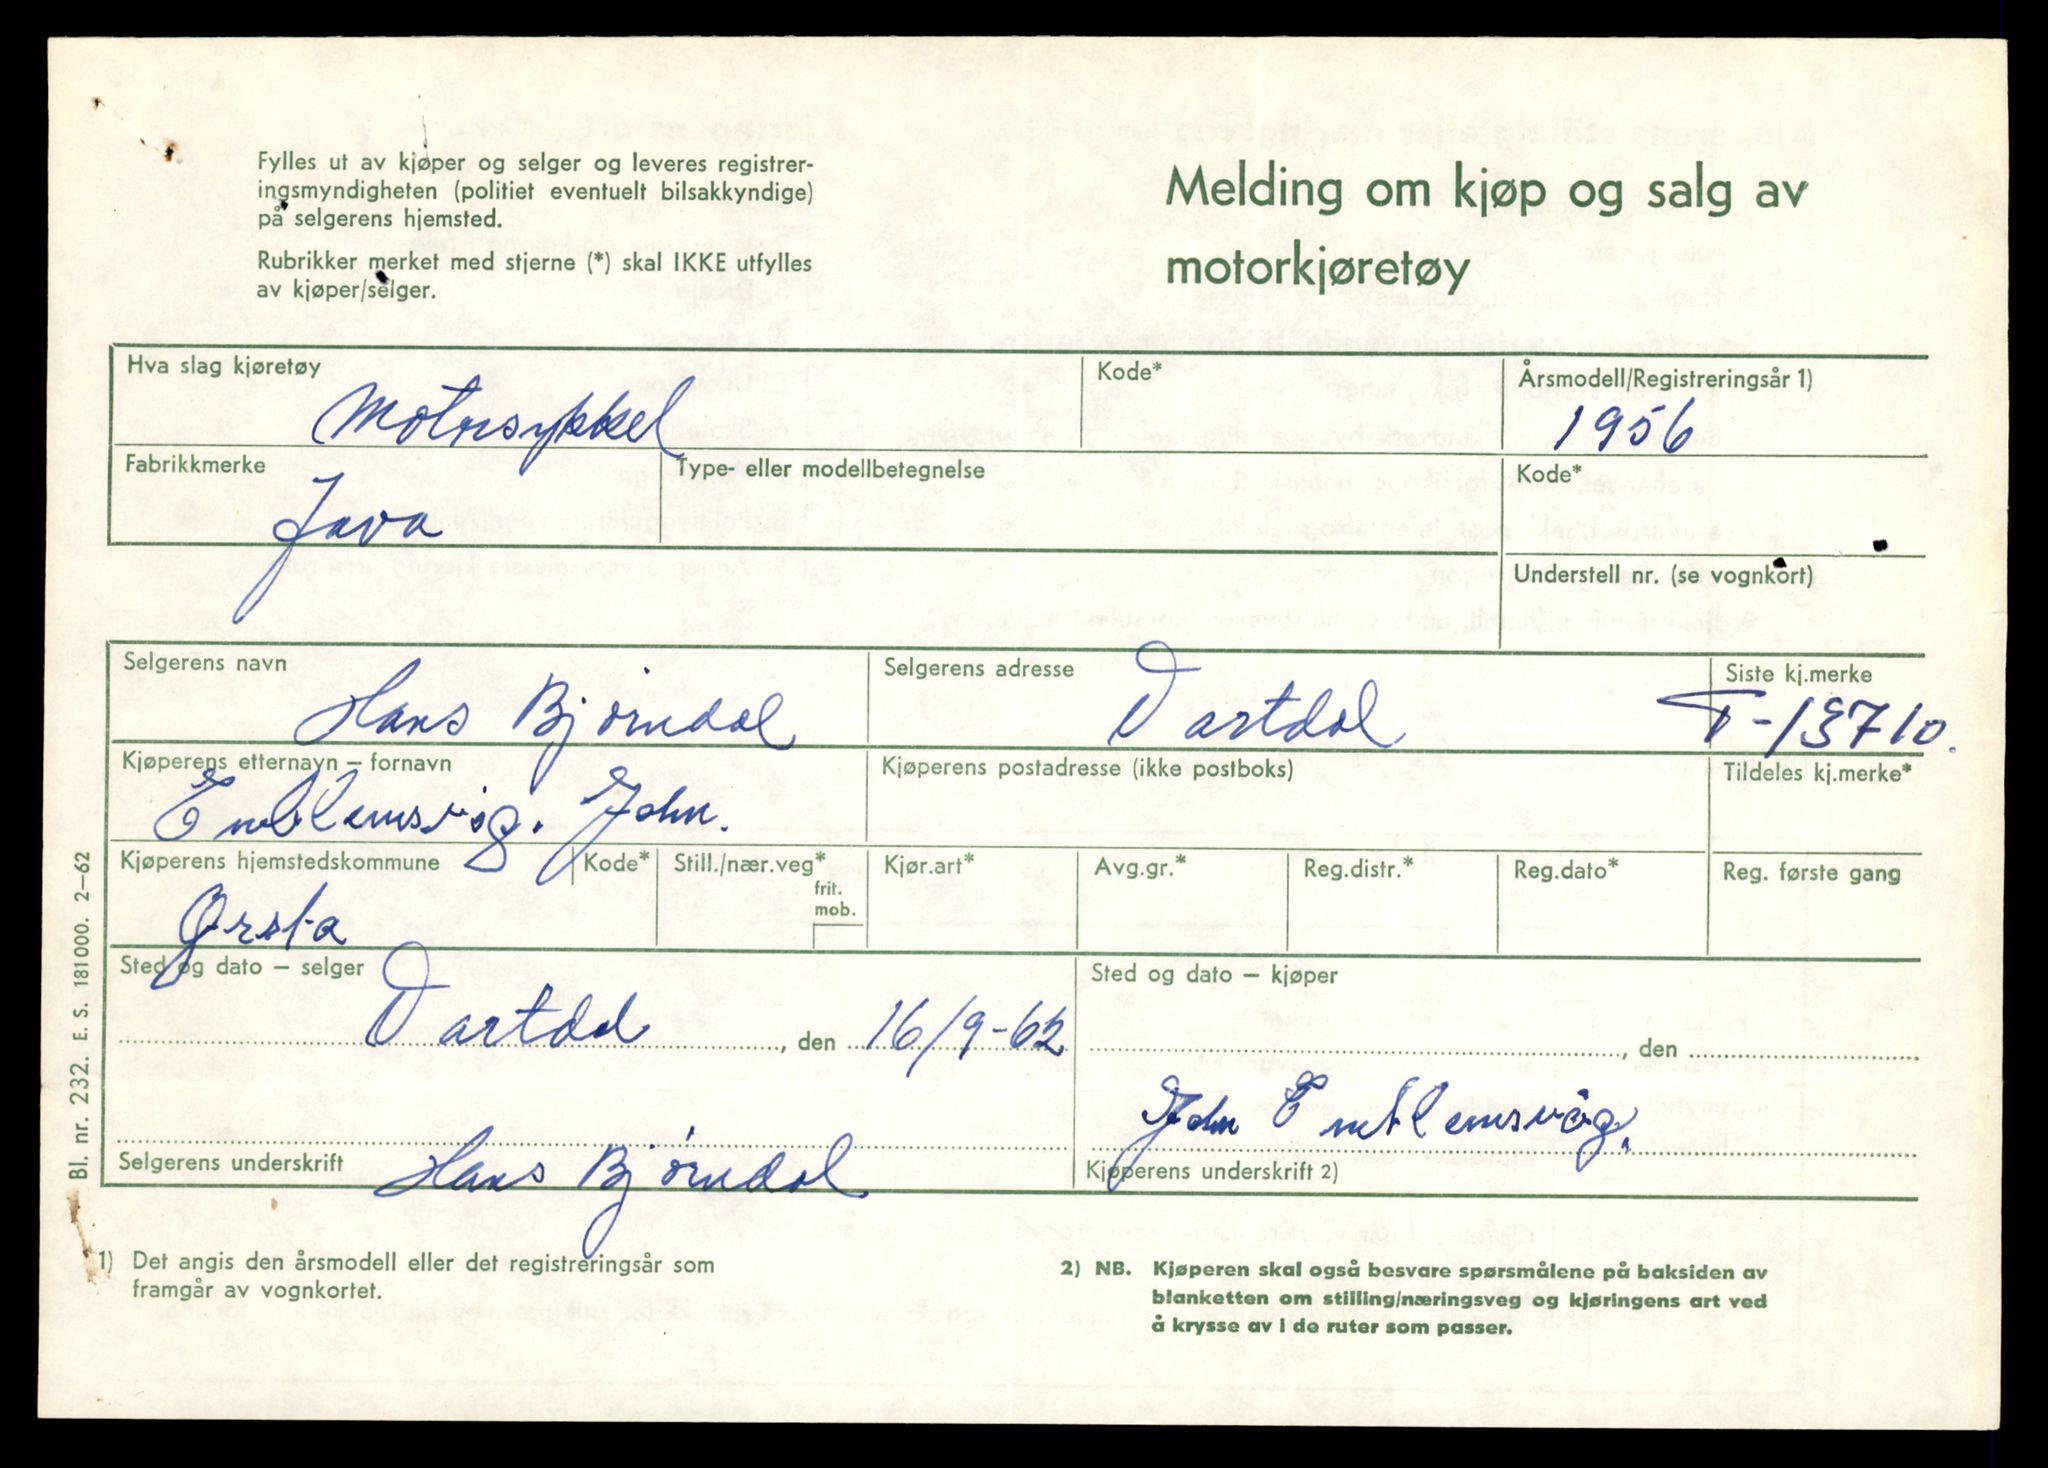 Fylles ut av kjøper og selger og leveres registrer-
ingsmyndigheten (politiet eventuelt bilsakkyndige)
på selgerens hjemsted.
Rubrikker merket med stjerne (*) skal IKKE utfylles
av kjøper/selger.
Melding om kjøp og salg av
motorkjøretøy
Hva slag kjøretøy
Motorsykkel
Kode*
Årsmodell/Registreringsår 1)
1956
Fabrikkmerke
Java
Type- eller modellbetegnelse
Kode*
Understell nr. (se vognkort)
Selgerens navn
Hans Bjørndal
Selgerens adresse
Vartdal
Siste kj.merke
T-13710.
Kjøperens etternavn – fornavn
Emblemsvåg. John.
Kjøperens postadresse (ikke postboks)
Tildeles kj.merke*
Kjøperens hjemstedskommune
Ørsta
Kode*
Still./nær.veg*
frit.
mob.
Kjør.art*
Avg.gr.*
Reg.distr.*
Reg.dato*
Reg. første gang
Sted og dato – selger
Vartdal, den 16/9-62
Sted og dato – kjøper
, den
Selgerens underskrift
Hans Bjørndal
John Emblemsvåg.
Kjøperens underskrift 2)
Bl. nr. 232. E. S. 181000. 2–62
1) Det angis den årsmodell eller det registreringsår som
framgår av vognkortet.
2) NB. Kjøperen skal også besvare spørsmålene på baksiden av
blanketten om stilling/næringsveg og kjøringens art ved
å krysse av i de ruter som passer.